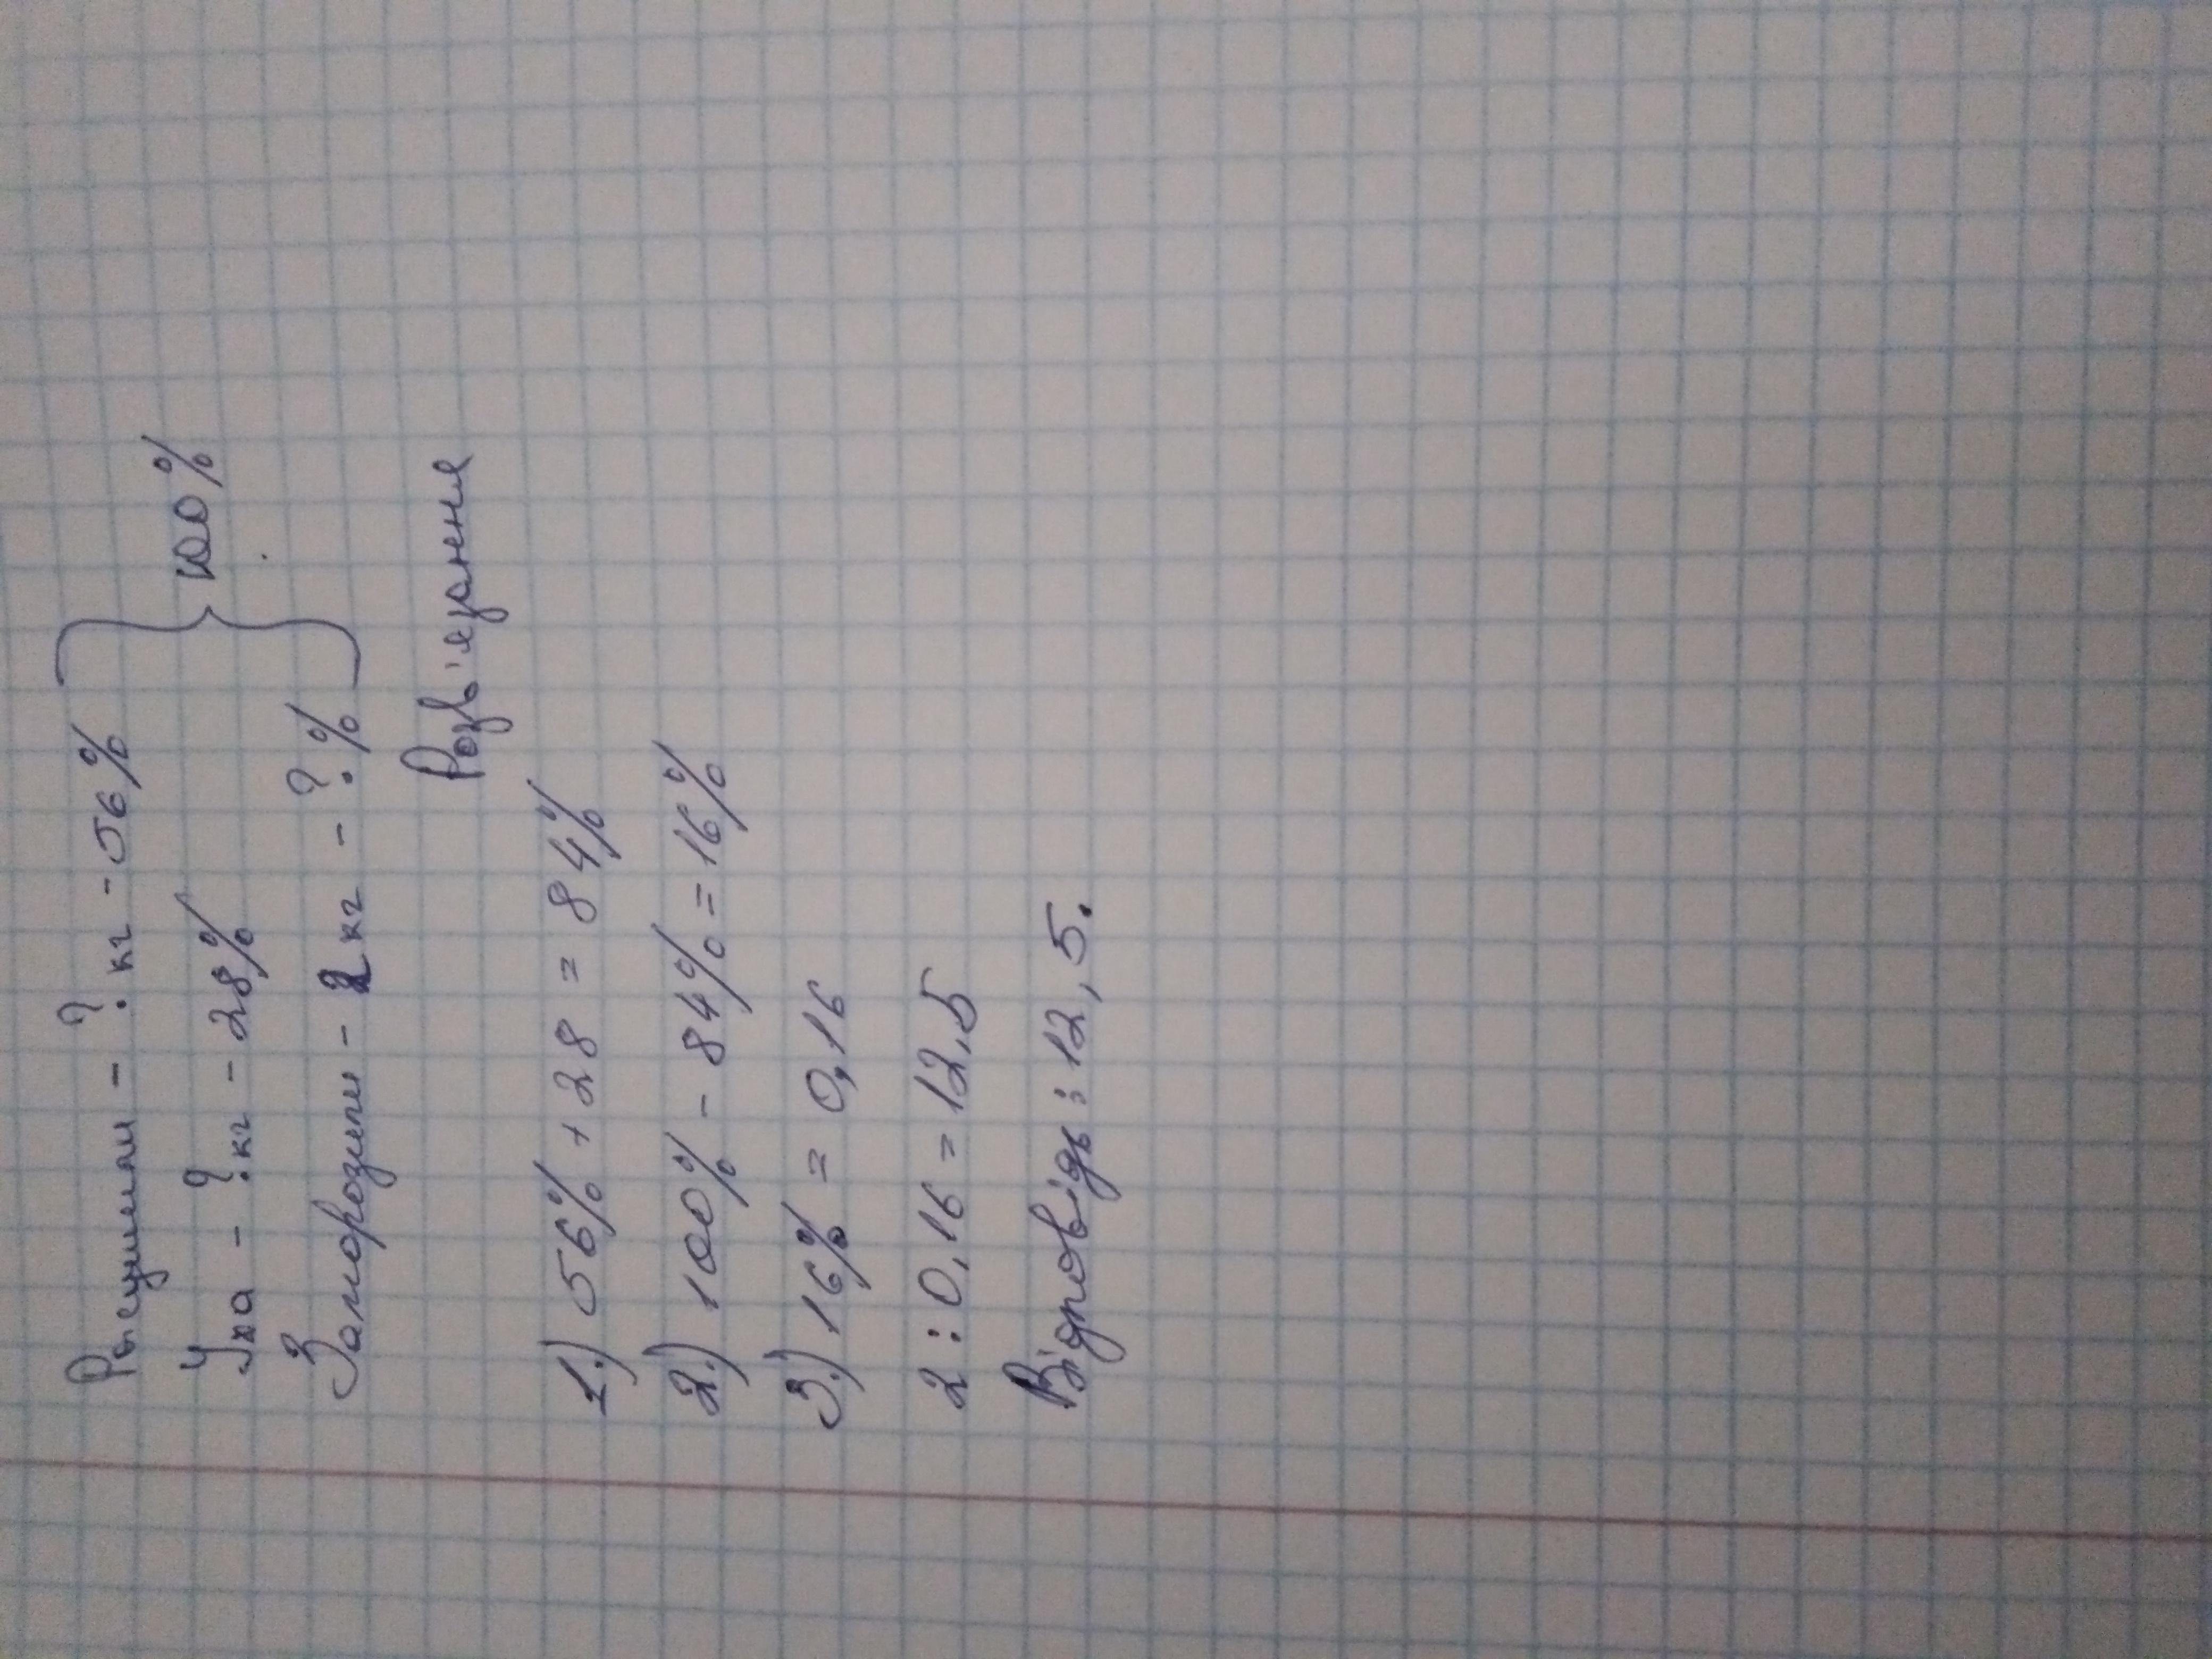 Рысушили - ? кг - 56%
Уха - ? кг - 28%
100%
Заморозили - 2 кг - ? %
Розв'язання
1.) 56% + 28 = 84%
2.) 100% - 84% = 16%
3.) 16% = 0,16
2 : 0,16 = 12,5
Відповідь : 12,5.